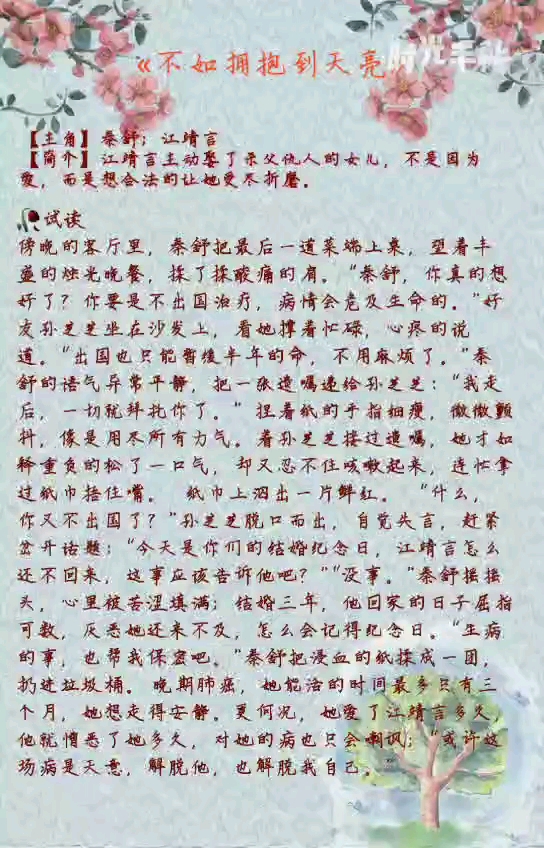 《不如拥抱到天亮》
时光手札
【主角】秦舒；江靖言
【简介】江靖言主动娶了杀父仇人的女儿，不是因为
爱，而是想合法的让她受尽折磨。
试读
傍晚的客厅里，秦舒把最后一道菜端上桌，望着丰
盛的烛光晚餐，揉了揉酸痛的肩。“秦舒，你真的想
好了？你要是不出国治疗，病情会危及生命的。”好
友孙芝芝坐在沙发上，看她撑着忙碌，心疼的说
道。“出国也只能暂缓半年的命，不用麻烦了。”秦
舒的语气异常平静，把一张遗嘱递给孙芝芝：“我走
后，一切就拜托你了。”捏着纸的手指细瘦，微微颤
抖，像是用尽所有力气。看孙芝芝接过遗嘱，她才如
释重负的松了一口气，却又忍不住咳嗽起来，连忙拿
过纸巾捂住嘴。 纸巾上洇出一片鲜红。 “什么，
你又不出国了？”孙芝芝脱口而出，自觉失言，赶紧
岔开话题：“今天是你们的结婚纪念日，江靖言怎么
还不回来，这事应该告诉他吧？”“没事。”秦舒摇摇
头，心里被苦涩填满；结婚三年，他回家的日子屈指
可数，厌恶她还来不及，怎么会记得纪念日。“生病
的事，也帮我保密吧。”秦舒把浸血的纸揉成一团，
扔进垃圾桶。晚期肺癌，她能活的时间最多只有三
个月，她想走得安静。更何况，她爱了江靖言多久，
他就憎恶了她多久，对她的病也只会嘲讽；“或许这
场病是天意，解脱他，也解脱我自己。”